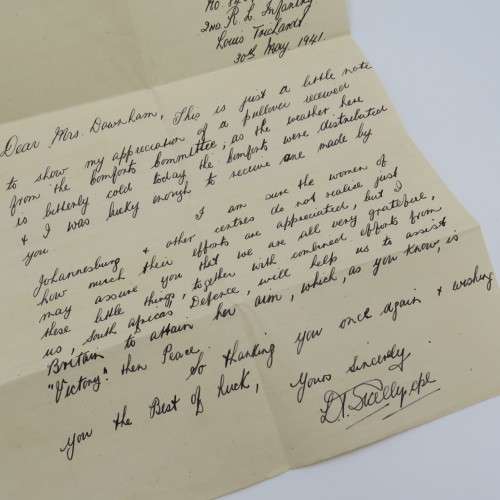 2nd. R. L. Infantry
Louis Trichardt
30th May 1941.
Dear Mrs. Dawnham, This is just a little note
to show my appreciation of a pullover received
from the Comforts Committee, as the weather here
is bitterly cold today the Comforts were distributed
& I was lucky enough to receive one made by
you.
I am sure the women of
Johannesburg & other centres do not realise just
how much their efforts are appreciated, but I
may assure you that we are all very grateful,
these little things, together with combined efforts from
us, South Africas Defence, will help us to assist
Britain to attain her aim, which, as you know, is
"Victory" then Peace.
So thanking you once again & wishing
you the Best of Luck,
Yours Sincerely.
D.T. Scelly. cpl